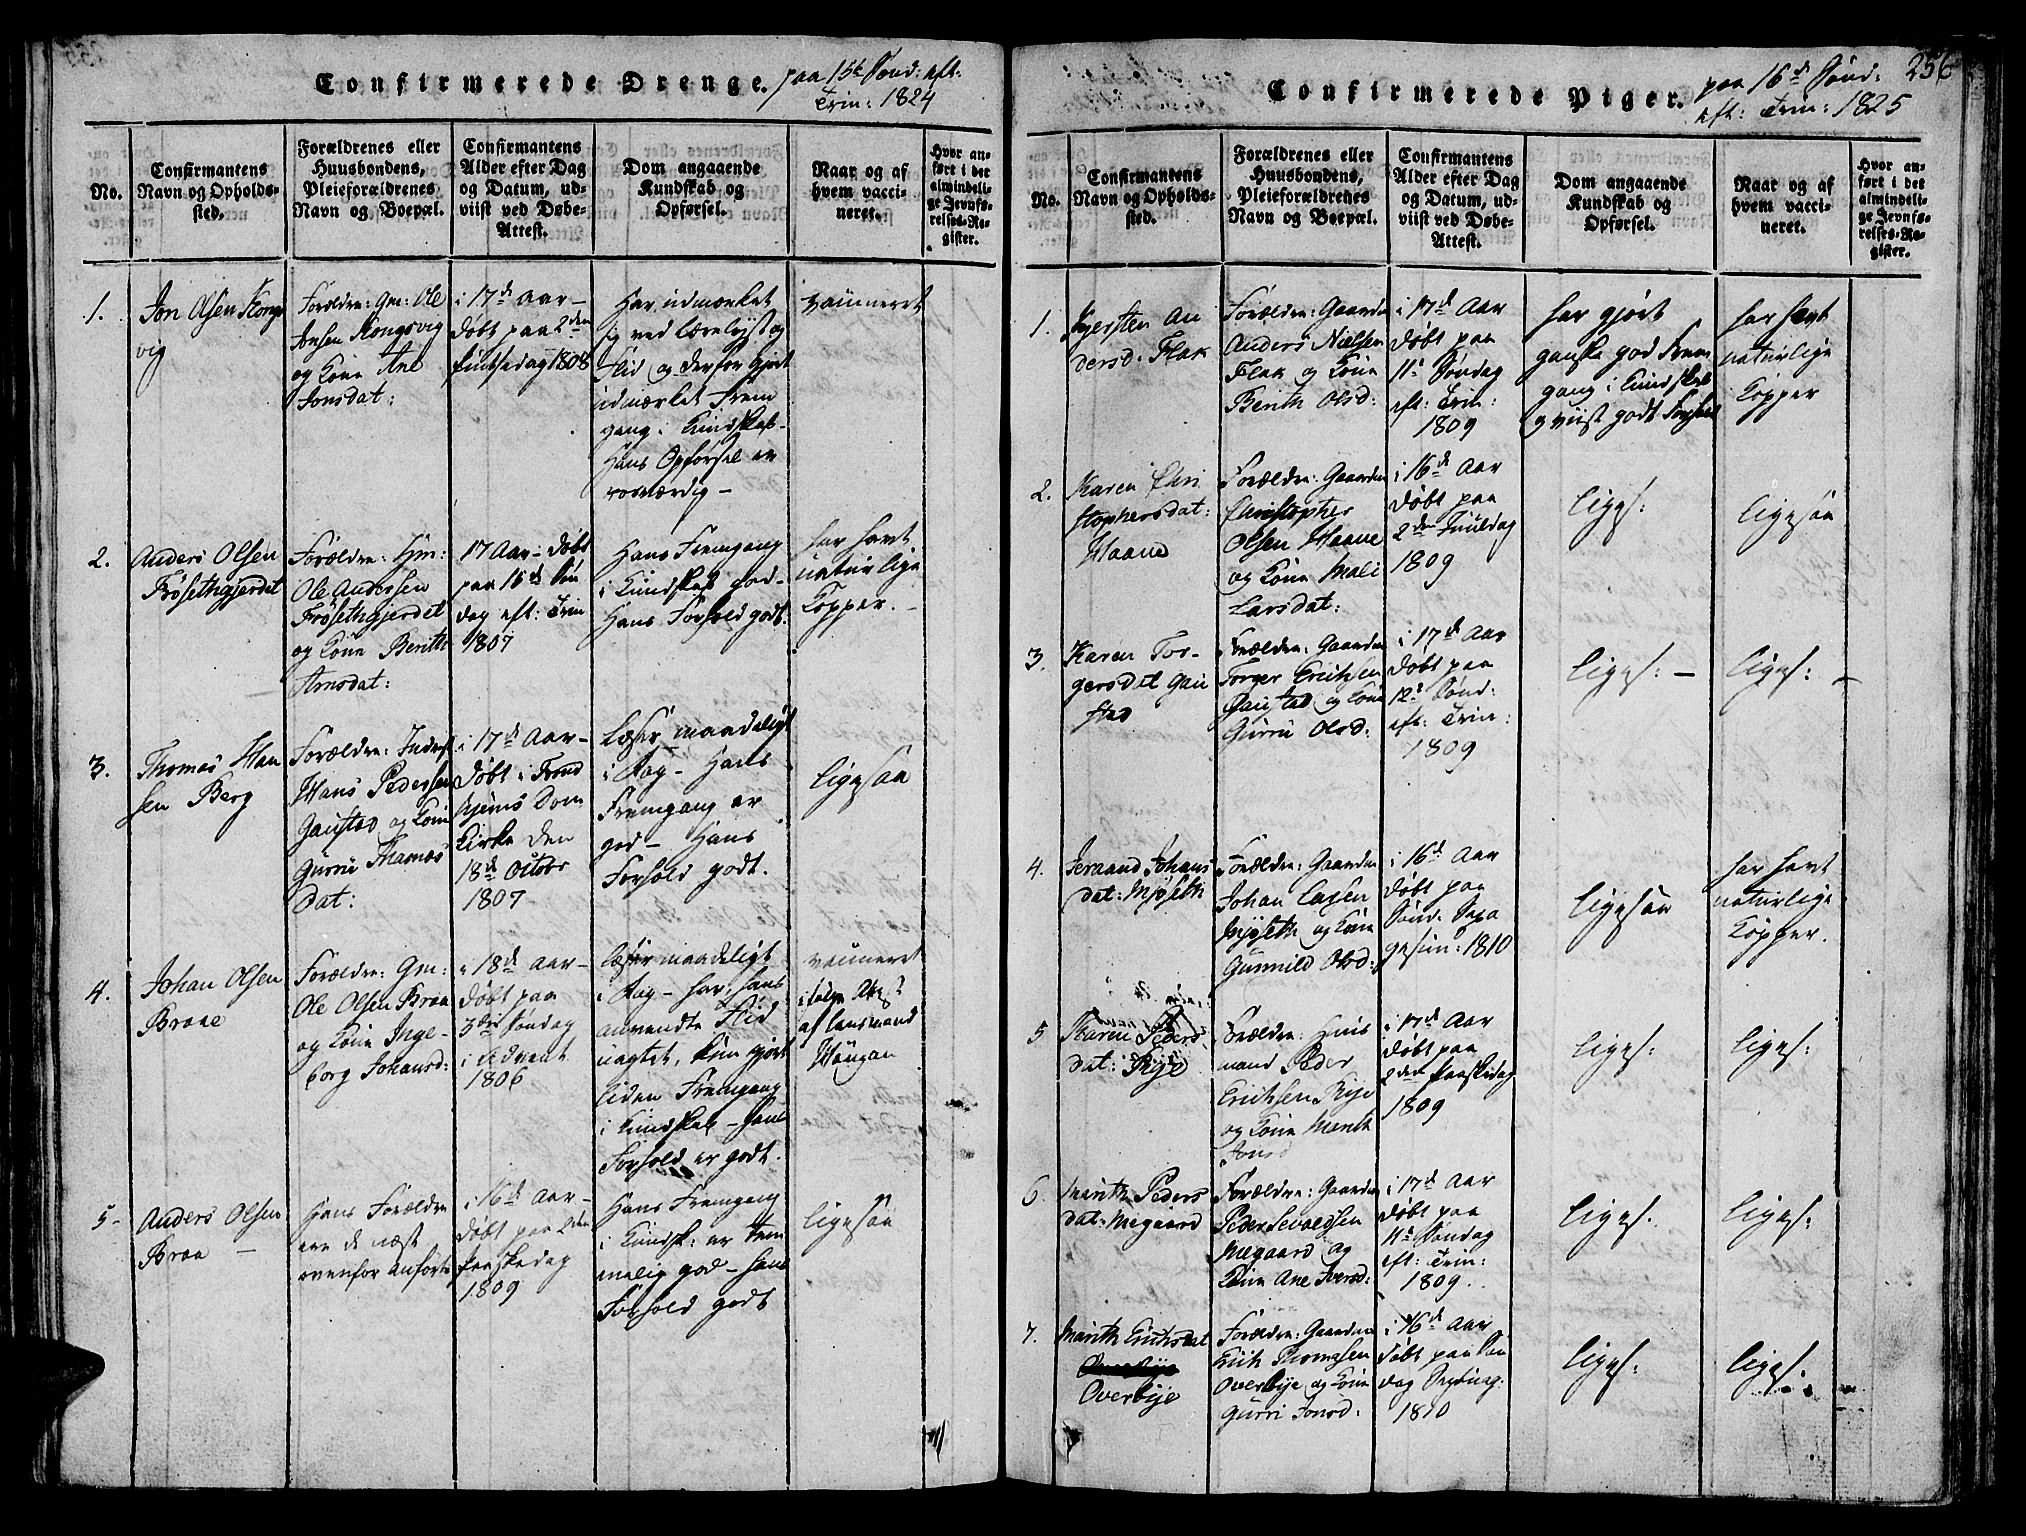 Confirmerede Drenge. paa 15de Sønd: eft:
Trin: 1824
No.
Confirmantens
Navn og Opholds-
sted.
Forældrenes eller
Huusbondens,
Pleieforældrenes
Navn og Boepæl.
Confirmantens
Alder efter Dag
og Datum, ud-
viist ved Døbe-
Attest.
Dom angaaende
Kundskab og
Opførsel.
Naar og af
hvem vacci-
neret.
Hvor an-
ført i det
almindeli-
ge Jevnfø-
relses-Re-
gister.
1.
Jon Olsen Kongs
vig
Forældre: Gm: Ole
Jonsen Kongsvig
og Kone Ane
Jonsdat:
i 17de Aar –
døbt paa 2den
Pindsedag 1808
Har udmærket
sig ved Lærelyst og
Flid og derfor gjort
udmærket Frem
gang i Kundskab –
Hans Opførsel er
rosværdig –
vaccineret
2.
Anders Olsen
Frøsethgjerdet
Forældre: Hm:
Ole Andersen
Frøsethgjerdet
og Kone Berith
Arnsdat:
17 Aar – døbt
paa 16de Søn
dag eft: Trin
1807
Hans Fremgang
i Kundskab god –
Hans Forhold godt.
har havt
naturlige
Kopper. –
3.
Thomas Han
sen Berg
Forældre: Inderst
Hans Pedersen
Gaustad og Kone
Gurru Thomas
dat:
i 17de Aar –
døbt i Trond
hjems Dom
Kirke den
18de Octobr
1807
Læser maadeligt
i Bog – Hans
Fremgang er
god – Hans
Forhold godt.
ligesaa
4.
Johan Olsen
Braae
Forældre: Gm:
Ole Olsen Braa
og Kone Inge-
borg Johansd:
i 18de Aar –
døbt paa
3die Søndag
i Advent
1806
læser maadeligt
i Bog – har, hans
anvendte Flid
uagtet, kun gjort
liden Fremgang
i Kundskab – hans
Forhold er godt.
vaccineret
ifølge Att:
af Lensmand
Haugan
5 –
Anders Olsen
Braa –
Hans Forældre
ere de næst
ovenfor anførte
i 16de Aar –
døbt paa 2den
Paaskedag
1809
Hans Fremgang
i Kundsk: er tem
melig god – hans
Forhold godt
ligesaa
256
Confirmerede Piger. paa 16de Sønd:
eft: Trin: 1825
No.
Confirmantens
Navn og Opholds-
sted.
Forældrenes eller
Huusbondens,
Pleieforældrenes
Navn og Boepæl.
Confirmantens
Alder efter Dag
og Datum, ud-
viist ved Døbe-
Attest.
Dom angaaende
Kundskab og
Opførsel.
Naar og af
hvem vacci-
neret.
Hvor an-
ført i det
almindeli-
ge Jevnfø-
relses-Re-
gister.
1.
Kjersten An
dersd: Flak
Forældre: Gaardm
Anders Nielsen
Flak og Kone
Berith Olsd:
i 17de Aar
døbt paa
11te Søndag
eft: Trin:
1809
har gjort
ganske god Frem
gang i Kundskab
og viist godt Forhold
har havt
naturlige
Kopper
2.
Karen Chri
stophersdat:
Haave
Forældre: Gaardm
Christopher
Olsen Haave
og Kone Mali
Larsdat:
i 16de Aar
døbt paa
2den Juuledag
1809
liges:
ligesaa
3.
Karen Tor-
gersdat Gau
stad
Forældre: Gaardm
Torger Erichsen
Gaustad og Kone
Gurru Olsd:
i 17de Aar
døbt paa
12te Sønd:
eft: Trin:
1809
liges: –
liges: –
4.
Jeraand Johans
dat: Mjøseth
Forældre: Gaardm
Johan Larsen
Mjøseth og Kone
Gunnild Olsd:
i 16de Aar
døbt paa
Sønd: Sexa
gesim: 1810
ligesaa
har havt
naturlige
Kopper.
5
Karen Peders
dat: Rye
Forældre: Huus
mand Peder
Erichsen Rye
og Kone Marith
Jonsd
i 17de Aar
døbt paa
2den Paaskedag
1809
liges:
liges:
6.
Marith Peders
dat: Megaard
Forældre: Gaardm
Peder Sevaldsen
Megaard og
Kone Ane Iversd:
i 17de Aar
døbt paa
11te Søndag
eft: Trin:
1809.
liges.
liges:
7.
Marith Erichsdat
Overbye
Forældre: Gaardm
Erich Thomesen
Overbye og Kone
Gurri Jonsd:
i 16de Aar
døbt paa Søn
dag Septuag:
1810
liges:
liges.